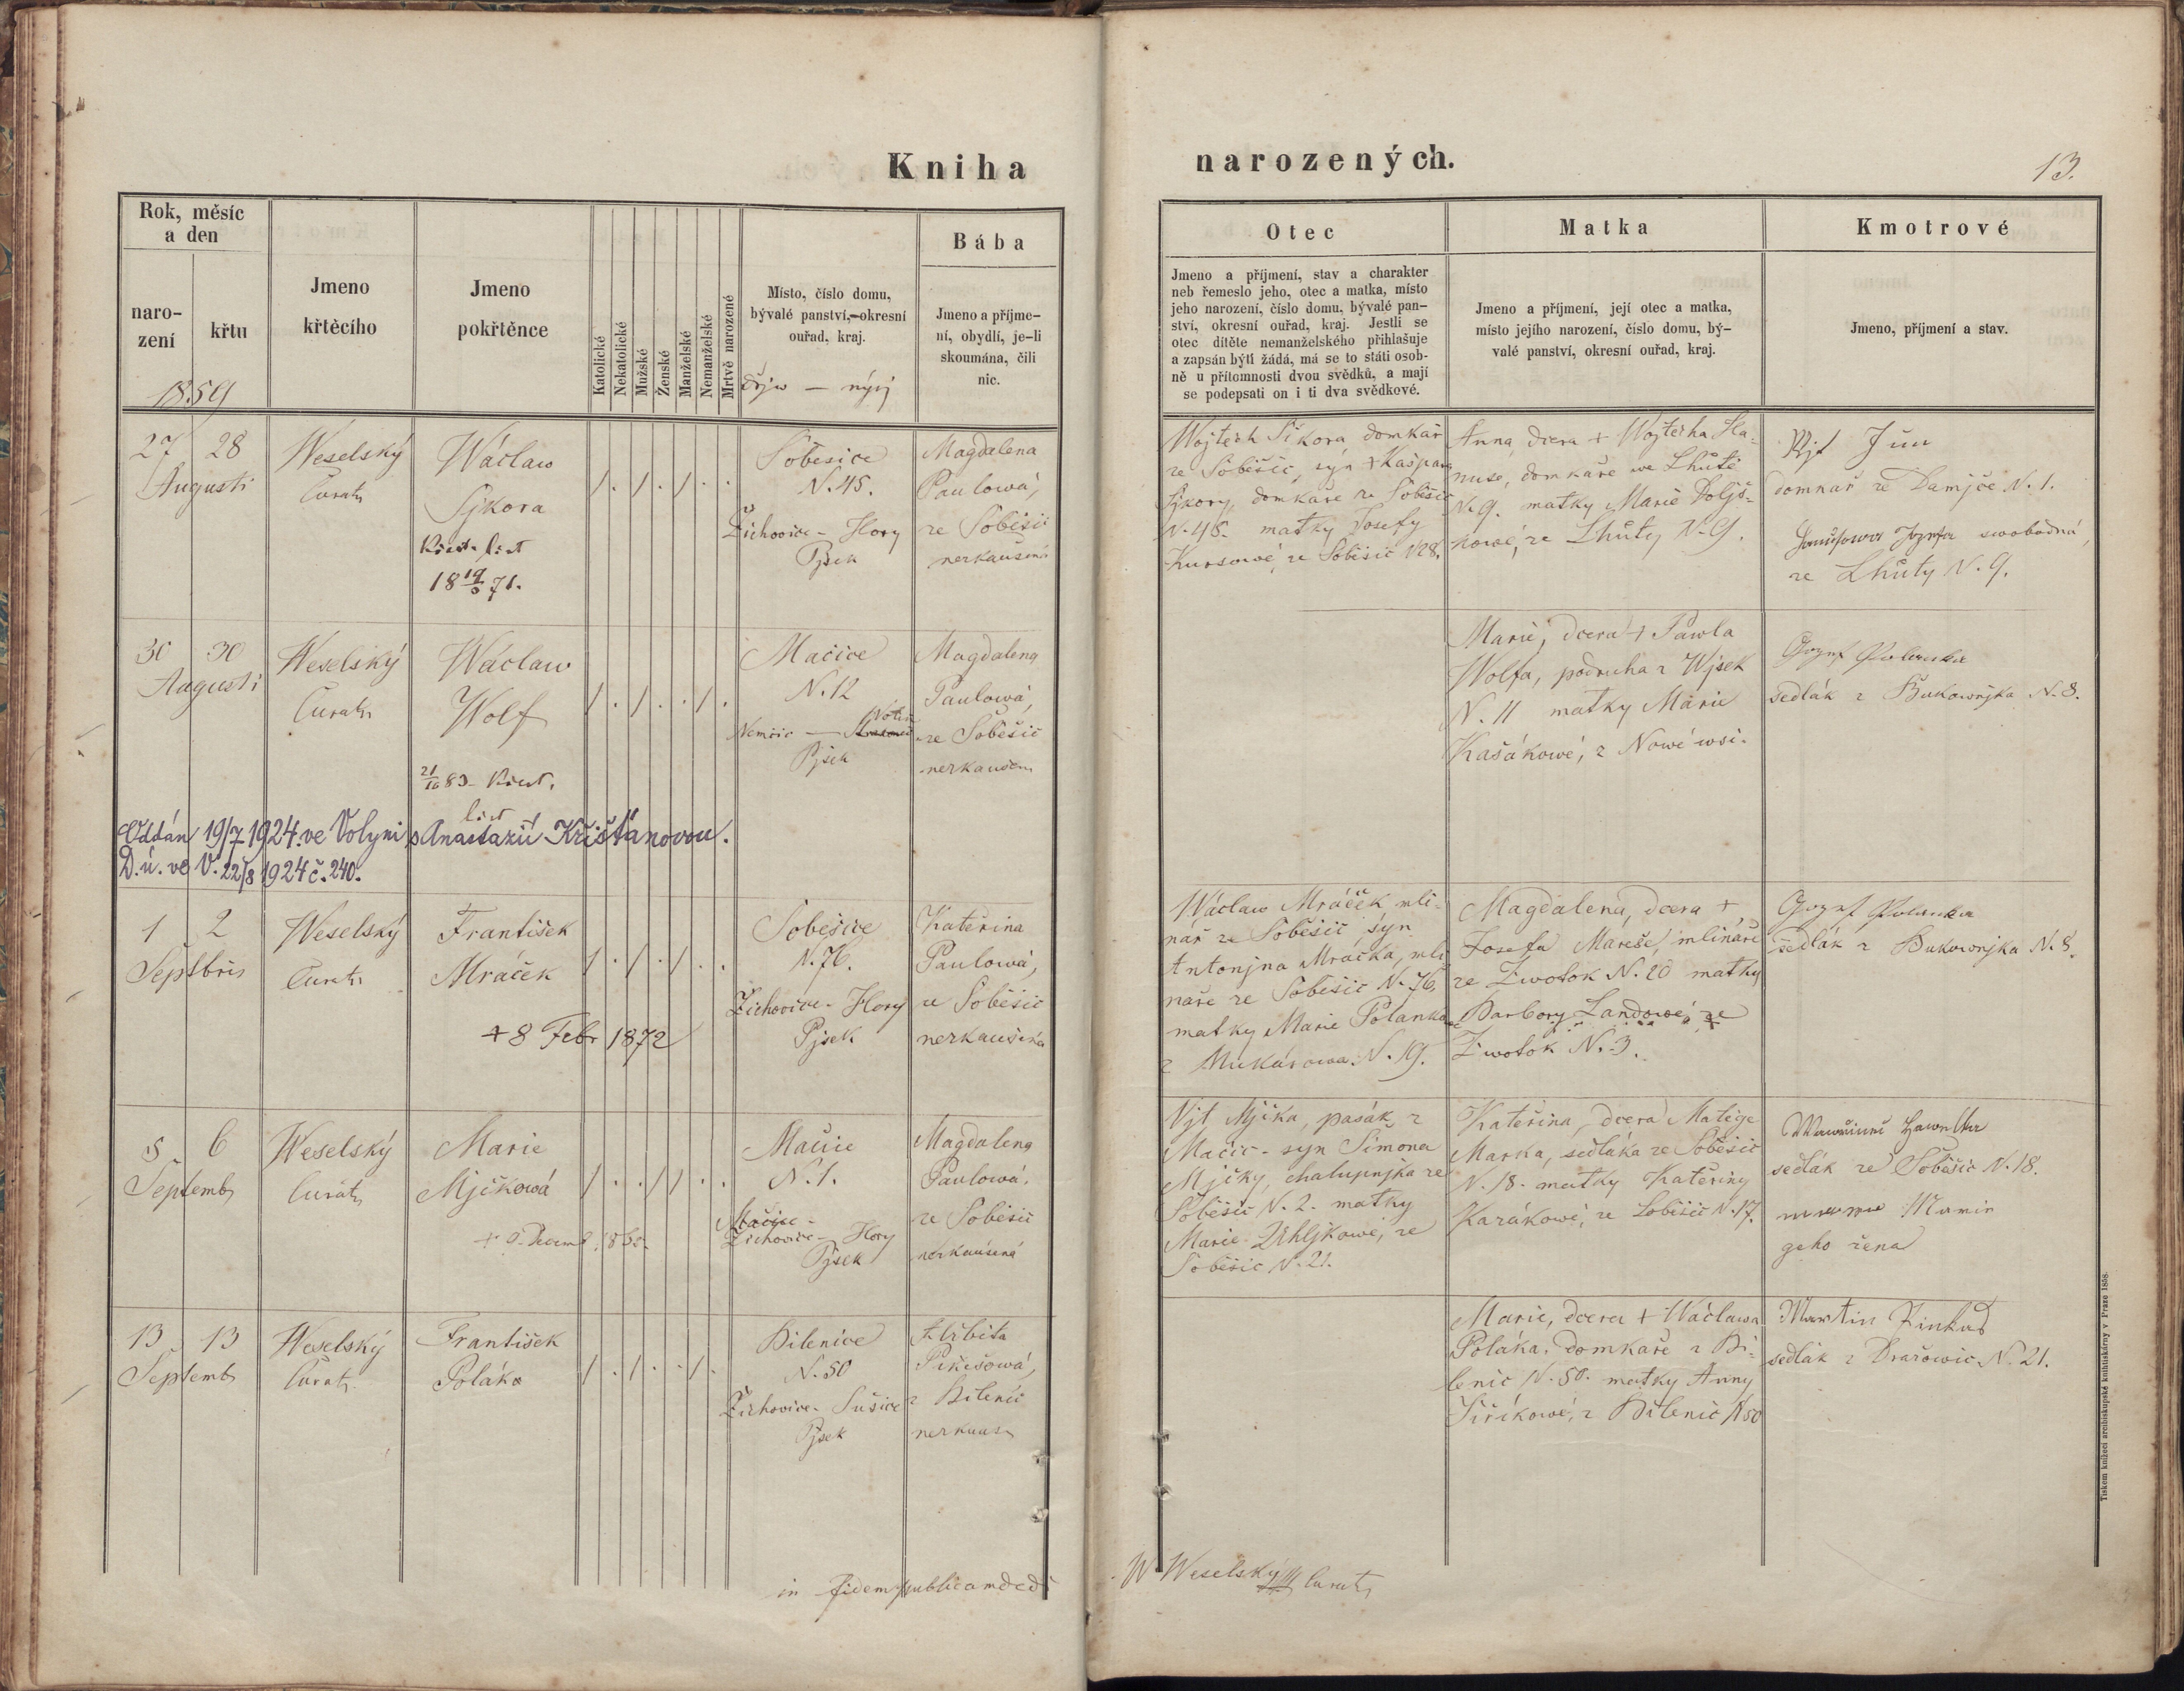 Kniha
narozených.
13.
Rok, měsíc
a den
naro-
zení
křtu
1859
Jmeno
křtěcího
Jmeno
pokřtěnce
Katolické
Nekatolické
Mužské
Ženské
Manželské
Nemanželské
Mrtvě narozené
Místo, číslo domu,
bývalé panství, okresní
ouřad, kraj.
Bába
Jmeno a příjme-
ní, obydlí, je-li
skoumána, čili
nic.
Otec
Jmeno a příjmení, stav a charakter
neb řemeslo jeho, otec a matka, místo
jeho narození, číslo domu, bývalé pan-
ství, okresní ouřad, kraj. Jestli se
otec dítěte nemanželského přihlašuje
a zapsán býti žádá, má se to státi osob-
ně u přítomnosti dvou svědků, a mají
se podepsati on i ti dva svědkové.
Matka
Jmeno a příjmení, její otec a matka,
místo jejího narození, číslo domu, bý-
valé panství, okresní ouřad, kraj.
Kmotrové
Jmeno, příjmení a stav.
27 28
Augusti
Weselský
Curats
Wáclaw
Sýkora
Křest. list
18 19/5 71.
Soběsice
N. 45.
Žichovice - Hory
Pjsek
Magdalena
Paulowá,
ze Soběsic
nezkaušená
Wojtěch Sikora, domkař
ze Soběsic, syn + Kašpara
Sýkory, domkaře ze Soběsic
N. 45. matky Josefy
Kursowé, ze Soběsic N 28.
Anna, dcera + Wojtěcha Ha-
nuse, domkaře we Lhůtě
N. 9. matky Marie Doljš-
kowé, ze Lhůty N. 9.
domkař ze Damjče N. 1.
Josefa swobodná,
ze Lhůty N. 9.
30 30
Augusti
Weselský
Curats
Wáclaw
Wolf
21/10 83 - Křest.
list
Mačice
N. 12
Nemčic -
Pjsek
Magdalena
Paulowá,
ze Soběsic
nezkaušena
Marie, dcera + Pawla
Wolfa, podruha z Wjsek
N. 11 matky Marie
Kašákowé, z Nowé wsi.
Jozef Polanka
sedlák z Bukownjka N. 8.
Oddán 19/7 1924. ve Volyni s Anastazií Křišťanovou.
D. ú. ve V. 22/8 1924 č. 240.
1 2
Septbris
Weselský
Curats
František
Mráček
+ 8 Febr 1872
Soběsice
N. 76.
Žichovice - Hory
Pjsek
Kateřina
Paulowá,
ze Soběsic
nezkaušená
Wáclaw Mráček mli-
nář ze Soběsic, syn
Antonjna Mračka, mli-
náře ze Soběsic N. 76,
matky Marie Polankowé
z Mukařowa N. 19.
Magdalena, dcera +
Josefa Mareše, mlináře
ze Žwotok N. 20 matky
Barbory Landowé, ze
Žwotok N. 3.
Jozef Polanka
sedlák z Bukownjka N. 8.
5 6
Septemb
Weselský
Curats
Marie
Mjčkowá
Mačice
N. 1.
Žichovice - Hory
Pjsek
Magdalena
Paulowá,
ze Soběsic
nezkaušená
Vjt Mjčka, pasák z
Mačic - syn Šimona
Mjčky, chalupnjka ze
Soběsic N. 2. matky
Marie Uhljkowé, ze
Soběsic N. 21.
Kateřina, dcera Matěge
Marka, sedláka ze Soběsic
N. 18. matky Kateřiny
Kazákowé, ze Soběsic N. 17.
sedlák ze Soběsic N. 18.
geho žena
13 13
Septemb
Weselský
Curats
František
Poláka
Bilenice
N. 50
Žichovice - Sušice
Pjsek
Alžbita
Pikešowá,
z Bilenic
Marie, dcera + Wáclawa
Poláka, domkaře z Bi-
lenic N. 50. matky Anny
Jiřikowé, z Bilenic N 50
Martin
sedlák z Dražowic N. 21.
in fidem publicam dedi
W Weselský Curats
Tiskem knížecí arcibiskupské knihtiskárny v Praze 1858.